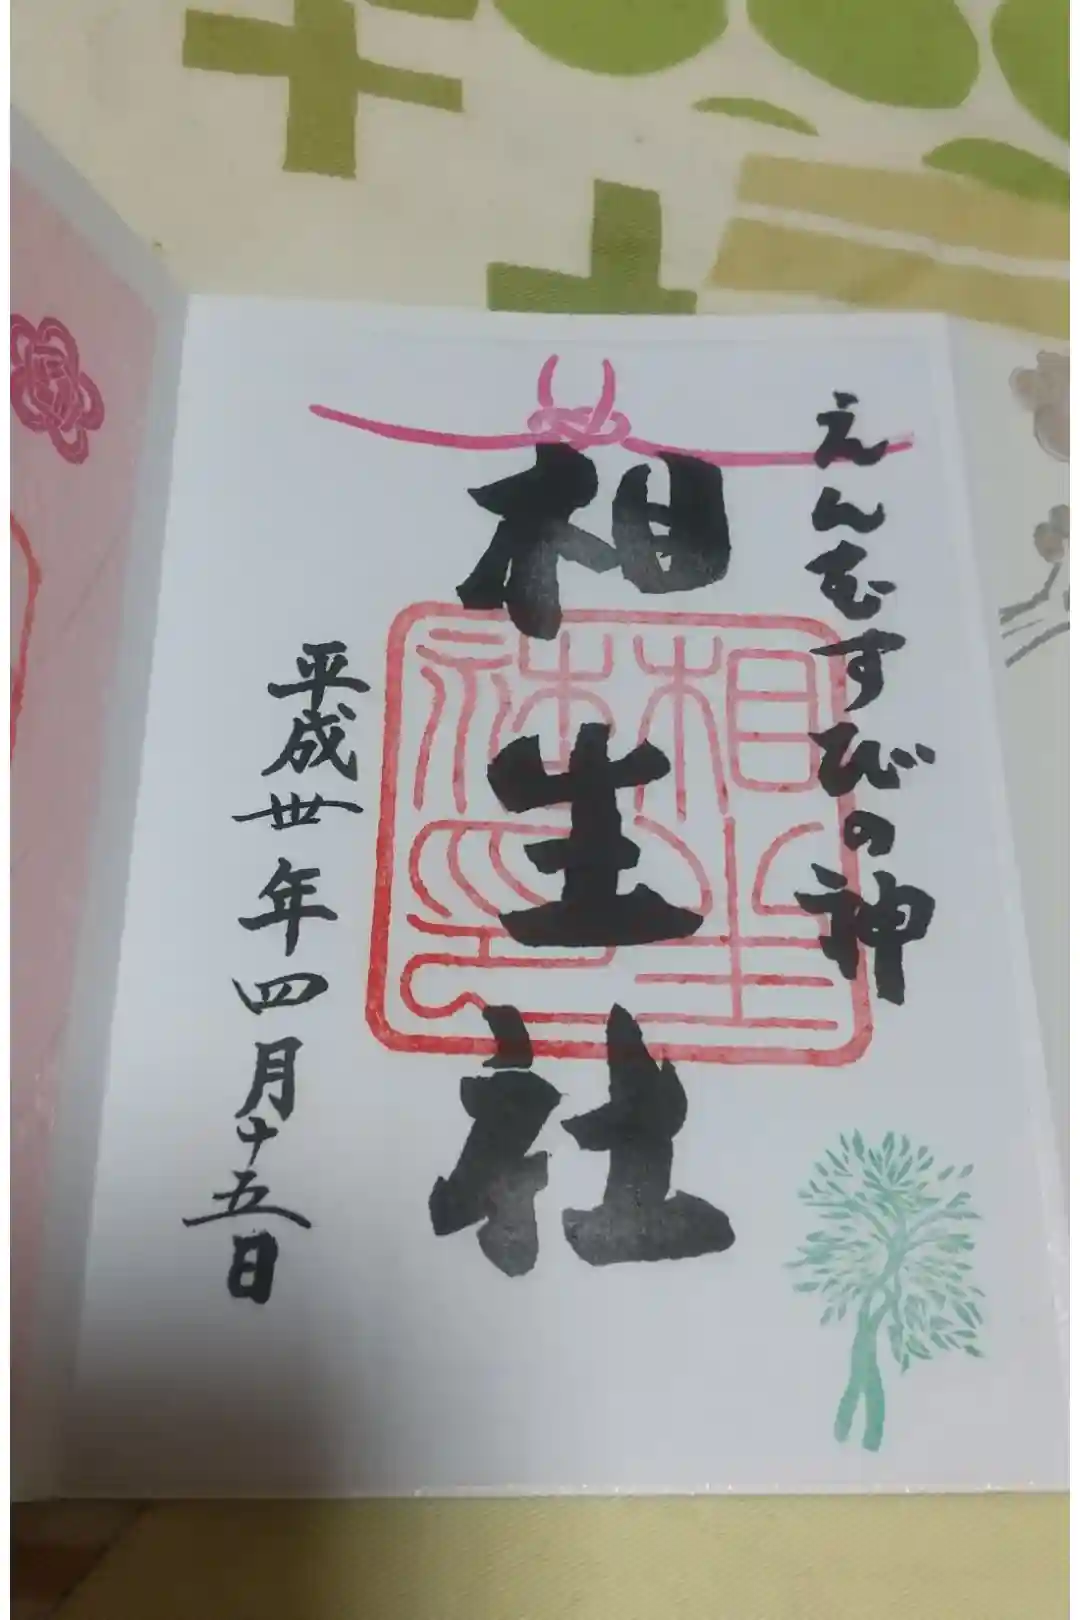 えんむすびの神
相生社
平成丗年四月十五日
相生社